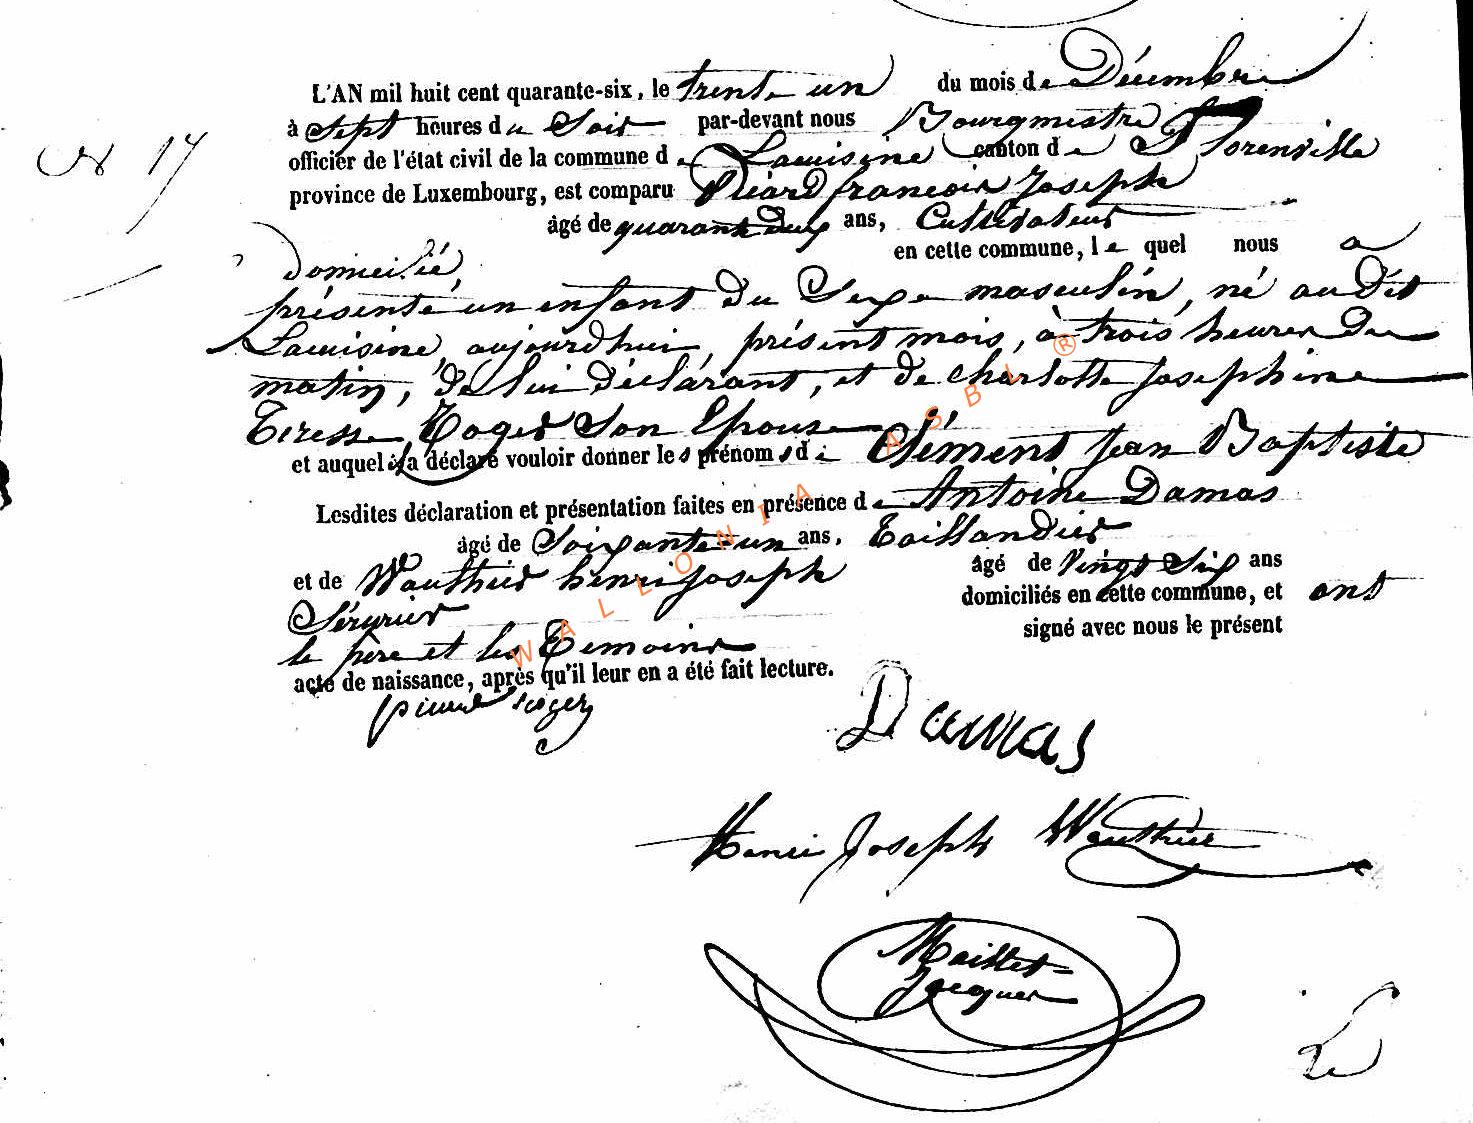 L'AN mil huit cent quarante-six, le trente un du mois de Décembre
à Sept heures du Soir par-devant nous Bourgmestre
N 17
officier de l'état civil de la commune de Lacuisine canton de Florenville
province de Luxembourg, est comparu françois Joseph
âgé de quarante deux ans, Cultivateur
domicilié en cette commune, le quel nous a
présenté un enfant du Sexe masculin, né audit
Lacuisine, aujourdhui, présent mois, à trois heures du
matin, de lui déclarant, et de charlotte Josephine
Teresse Roger Son Epouse
et auquel il a déclaré vouloir donner les prénoms de Clément Jean Baptiste
Lesdites déclaration et présentation faites en présence de Antoine Damas
âgé de Soixante-un ans, Taillandier
et de Wauthier henri Joseph âgé de Vingt Six ans
Sérurier domiciliés en cette commune, et ont
le père et les Témoins signé avec nous le présent
acte de naissance, après qu'il leur en a été fait lecture.
Damas
Henri Joseph Wauthier
Maillet-
Jacques
WALLONIA ASBL ®